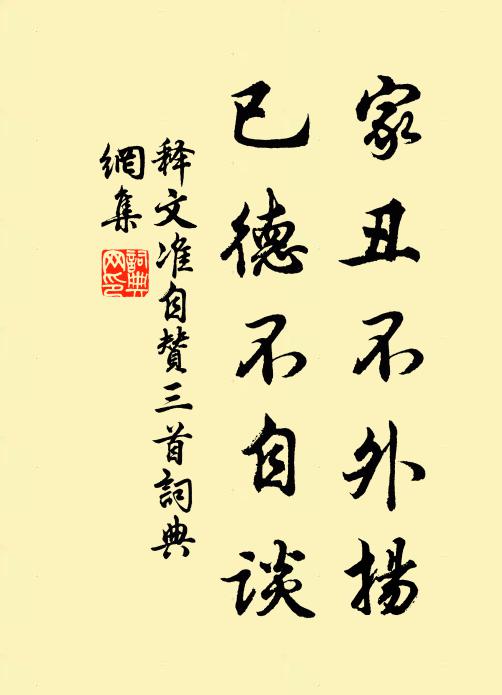 家丑不外揚
已德不自谈
释文准自贊三首詞典
網集
詞典
网印